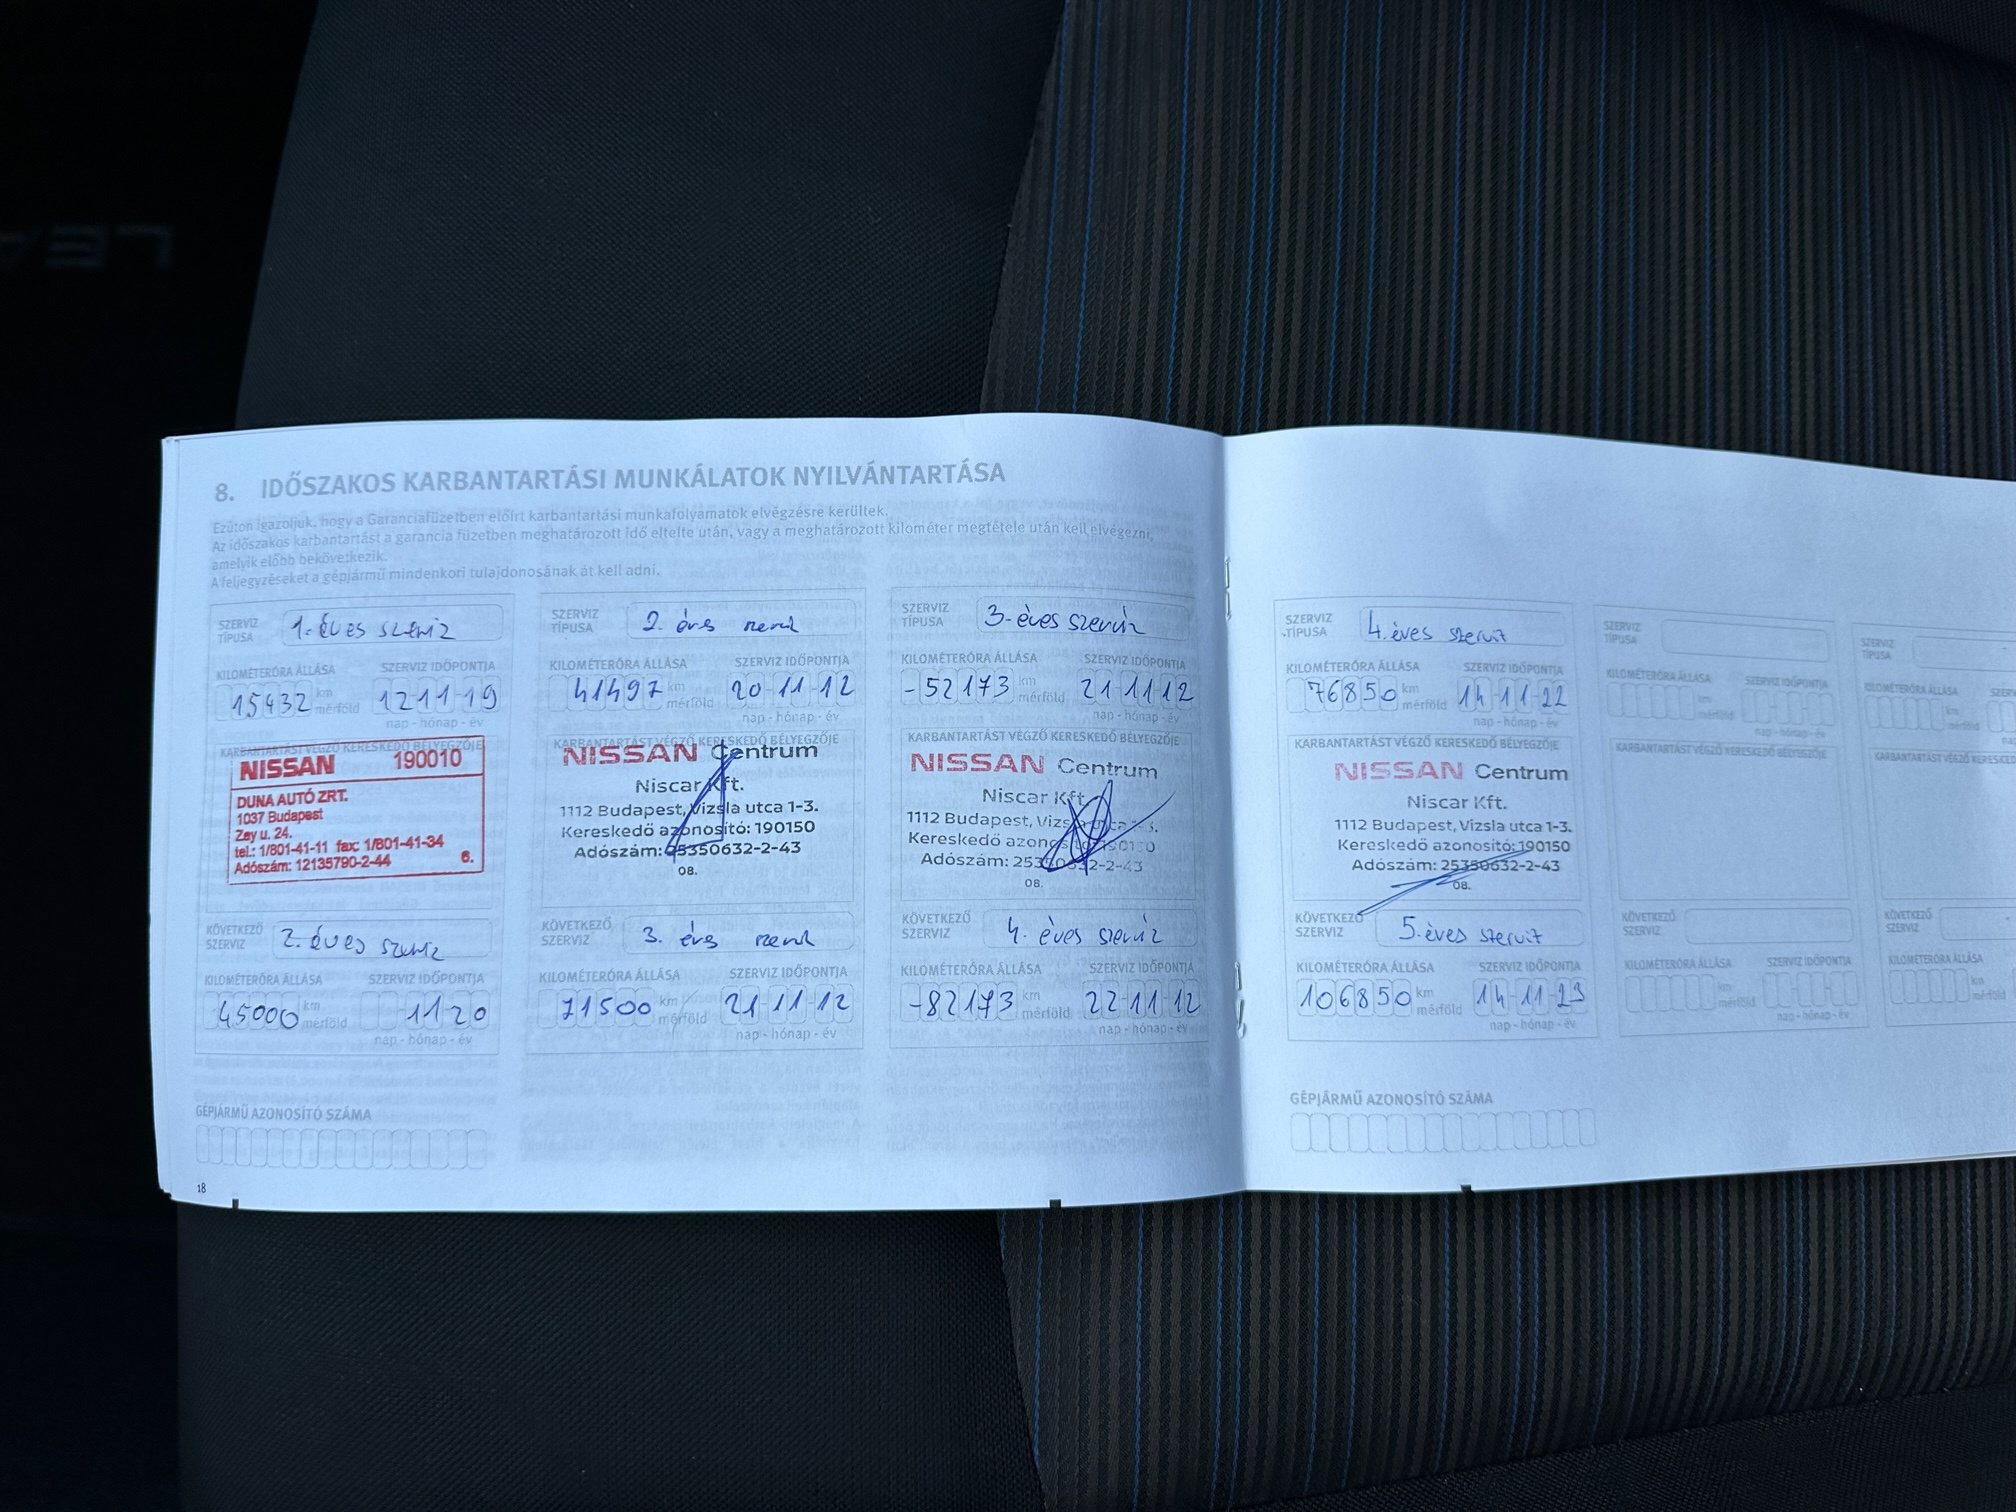 LEA
8. IDŐSZAKOS KARBANTARTÁSI MUNKÁLATOK NYILVÁNTARTÁSA
Ezúton igazoljuk, hogy a Garanciafüzetben előírt karbantartási munkafolyamatok elvégzésre kerültek.
Az időszakos karbantartást a garancia füzetben meghatározott idő eltelte után, vagy a meghatározott kilométer megtétele után kell elvégezni,
amelyik előbb bekövetkezik.
A feljegyzéseket a gépjármű mindenkori tulajdonosának át kell adni.
SZERVIZ TÍPUSA 1. éves szerviz
KILOMÉTERÓRA ÁLLÁSA SZERVIZ IDŐPONTJA
15432 km mérföld 12 11 19
nap - hónap - év
KARBANTARTÁST VÉGZŐ KERESKEDŐ BÉLYEGZŐJE
NISSAN 190010
DUNA AUTÓ ZRT.
1037 Budapest
Zay u. 24.
tel.: 1/801-41-11 fax: 1/801-41-34
Adószám: 12135790-2-44 6.
KÖVETKEZŐ SZERVIZ 2. éves szerviz
KILOMÉTERÓRA ÁLLÁSA SZERVIZ IDŐPONTJA
45000 km mérföld 11 20
nap - hónap - év
GÉPJÁRMŰ AZONOSÍTÓ SZÁMA
18
SZERVIZ TÍPUSA 2. éves szerviz
KILOMÉTERÓRA ÁLLÁSA SZERVIZ IDŐPONTJA
41497 km mérföld 20 11 12
nap - hónap - év
KARBANTARTÁST VÉGZŐ KERESKEDŐ BÉLYEGZŐJE
NISSAN Centrum
Niscar Kft.
1112 Budapest, Vizsla utca 1-3.
Kereskedő azonosító: 190150
Adószám: 25350632-2-43
08.
KÖVETKEZŐ SZERVIZ 3. éves szerviz
KILOMÉTERÓRA ÁLLÁSA SZERVIZ IDŐPONTJA
71500 km mérföld 21 11 12
nap - hónap - év
SZERVIZ TÍPUSA 3. éves szerviz
KILOMÉTERÓRA ÁLLÁSA SZERVIZ IDŐPONTJA
-52173 km mérföld 21 11 12
nap - hónap - év
KARBANTARTÁST VÉGZŐ KERESKEDŐ BÉLYEGZŐJE
NISSAN Centrum
Niscar Kft.
1112 Budapest, Vizsla utca 1-3.
Kereskedő azonosító: 190150
Adószám: 25350632-2-43
08.
KÖVETKEZŐ SZERVIZ 4. éves szerviz
KILOMÉTERÓRA ÁLLÁSA SZERVIZ IDŐPONTJA
-82173 km mérföld 22 11 12
nap - hónap - év
SZERVIZ TÍPUSA 4. éves szerviz
KILOMÉTERÓRA ÁLLÁSA SZERVIZ IDŐPONTJA
76850 km mérföld 14 11 22
nap - hónap - év
KARBANTARTÁST VÉGZŐ KERESKEDŐ BÉLYEGZŐJE
NISSAN Centrum
Niscar Kft.
1112 Budapest, Vizsla utca 1-3.
Kereskedő azonosító: 190150
Adószám: 25350632-2-43
08.
KÖVETKEZŐ SZERVIZ 5. éves szerviz
KILOMÉTERÓRA ÁLLÁSA SZERVIZ IDŐPONTJA
106850 km mérföld 14 11 23
nap - hónap - év
GÉPJÁRMŰ AZONOSÍTÓ SZÁMA
SZERVIZ TÍPUSA
KILOMÉTERÓRA ÁLLÁSA SZERVIZ IDŐPONTJA
km mérföld
nap - hónap - év
KARBANTARTÁST VÉGZŐ KERESKEDŐ BÉLYEGZŐJE
KÖVETKEZŐ SZERVIZ
KILOMÉTERÓRA ÁLLÁSA SZERVIZ IDŐPONTJA
km mérföld
nap - hónap - év
SZERVIZ TÍPUSA
KILOMÉTERÓRA ÁLLÁSA
km mérföld
KARBANTARTÁST VÉGZŐ
KÖVETKEZŐ SZERVIZ
KILOMÉTERÓRA ÁLLÁSA
km mérföld